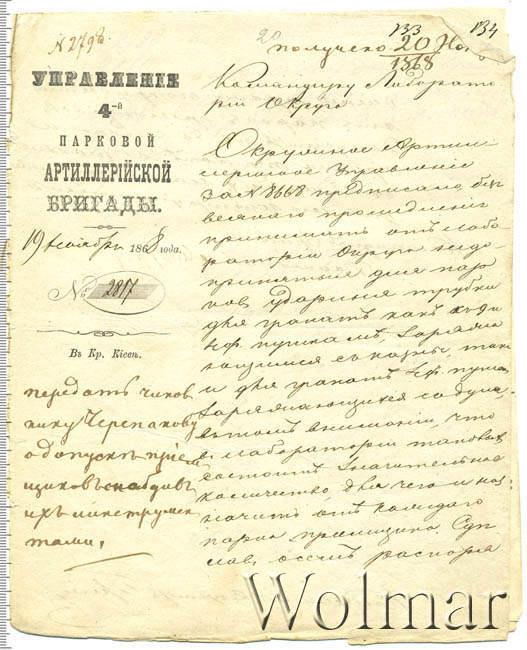 № 2798.
20
133
134
получено 20 Ноя
1868
УПРАВЛЕНІЕ
4-й
ПАРКОВОЙ
АРТИЛЛЕРІЙСКОЙ
БРИГАДЫ.
19 Ноября 1868 года.
№ 2817
Въ Кр. Кіевѣ.
передать чинов
нику Черепахову
о допускѣ пріем
щиковъ снабдивъ
ихъ инструмен
тами,
Командиру Лаборато
ріи Округа
Окружное Артил
лерійское Управленіе
за № 8668 предписало, безъ
всякаго промедленія
принимать отъ лабо
раторіи Округа недо
принятыя для пар
ковъ ударныя трубки
для гранатъ какъ къ
4ф. пушкамъ, заряжа
ющимся съ казны, такъ
и для гранатъ 4ф. пуш
заряжающихся съ дула,
въ томъ вниманіи, что
въ лабораторіи таковыхъ
состоитъ значительное
количество, для чего и наз
начить отъ каждаго
парка пріемщика. Сдѣ
лавъ о семъ распоря
Wolmar